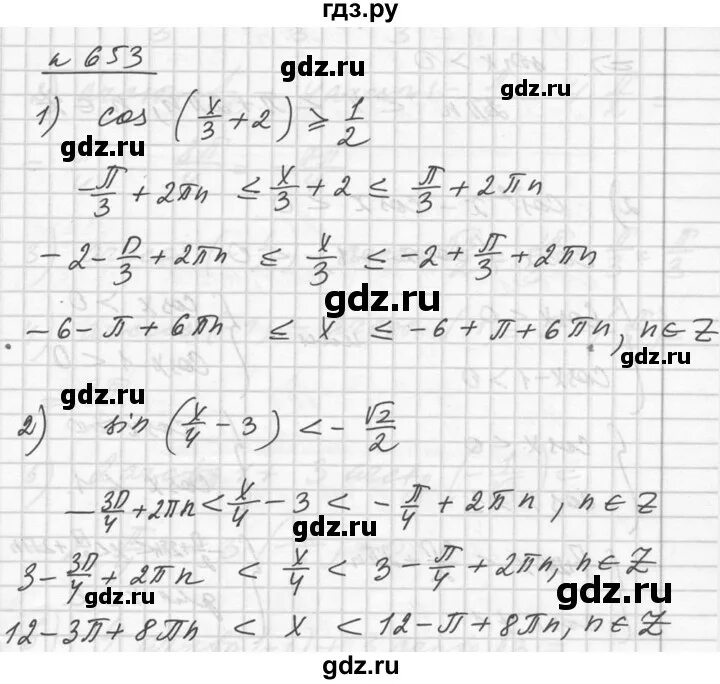 гдз.ру
gdz.ru
№ 653
gdz.ru
gdz.ru
1) cos (x/3 + 2) ⩾ 1/2
gdz.ru
-π/3 + 2πn ≤ x/3 + 2 ≤ π/3 + 2πn
-2 - π/3 + 2πn ≤ x/3 ≤ -2 + π/3 + 2πn
gdz.ru
-6 - π + 6πn ≤ x ≤ -6 + π + 6πn, n ∈ Z
gdz.ru
gdz.ru
2) sin (x/4 - 3) < - √2/2
gdz.ru
-3π/4 + 2πn < x/4 - 3 < -π/4 + 2πn, n ∈ Z
gdz.ru
3 - 3π/4 + 2πn < x/4 < 3 - π/4 + 2πn, n ∈ Z
gdz.ru
gdz.ru
12 - 3π + 8πn < x < 12 - π + 8πn, n ∈ Z
gdz.ru
gdz.ru